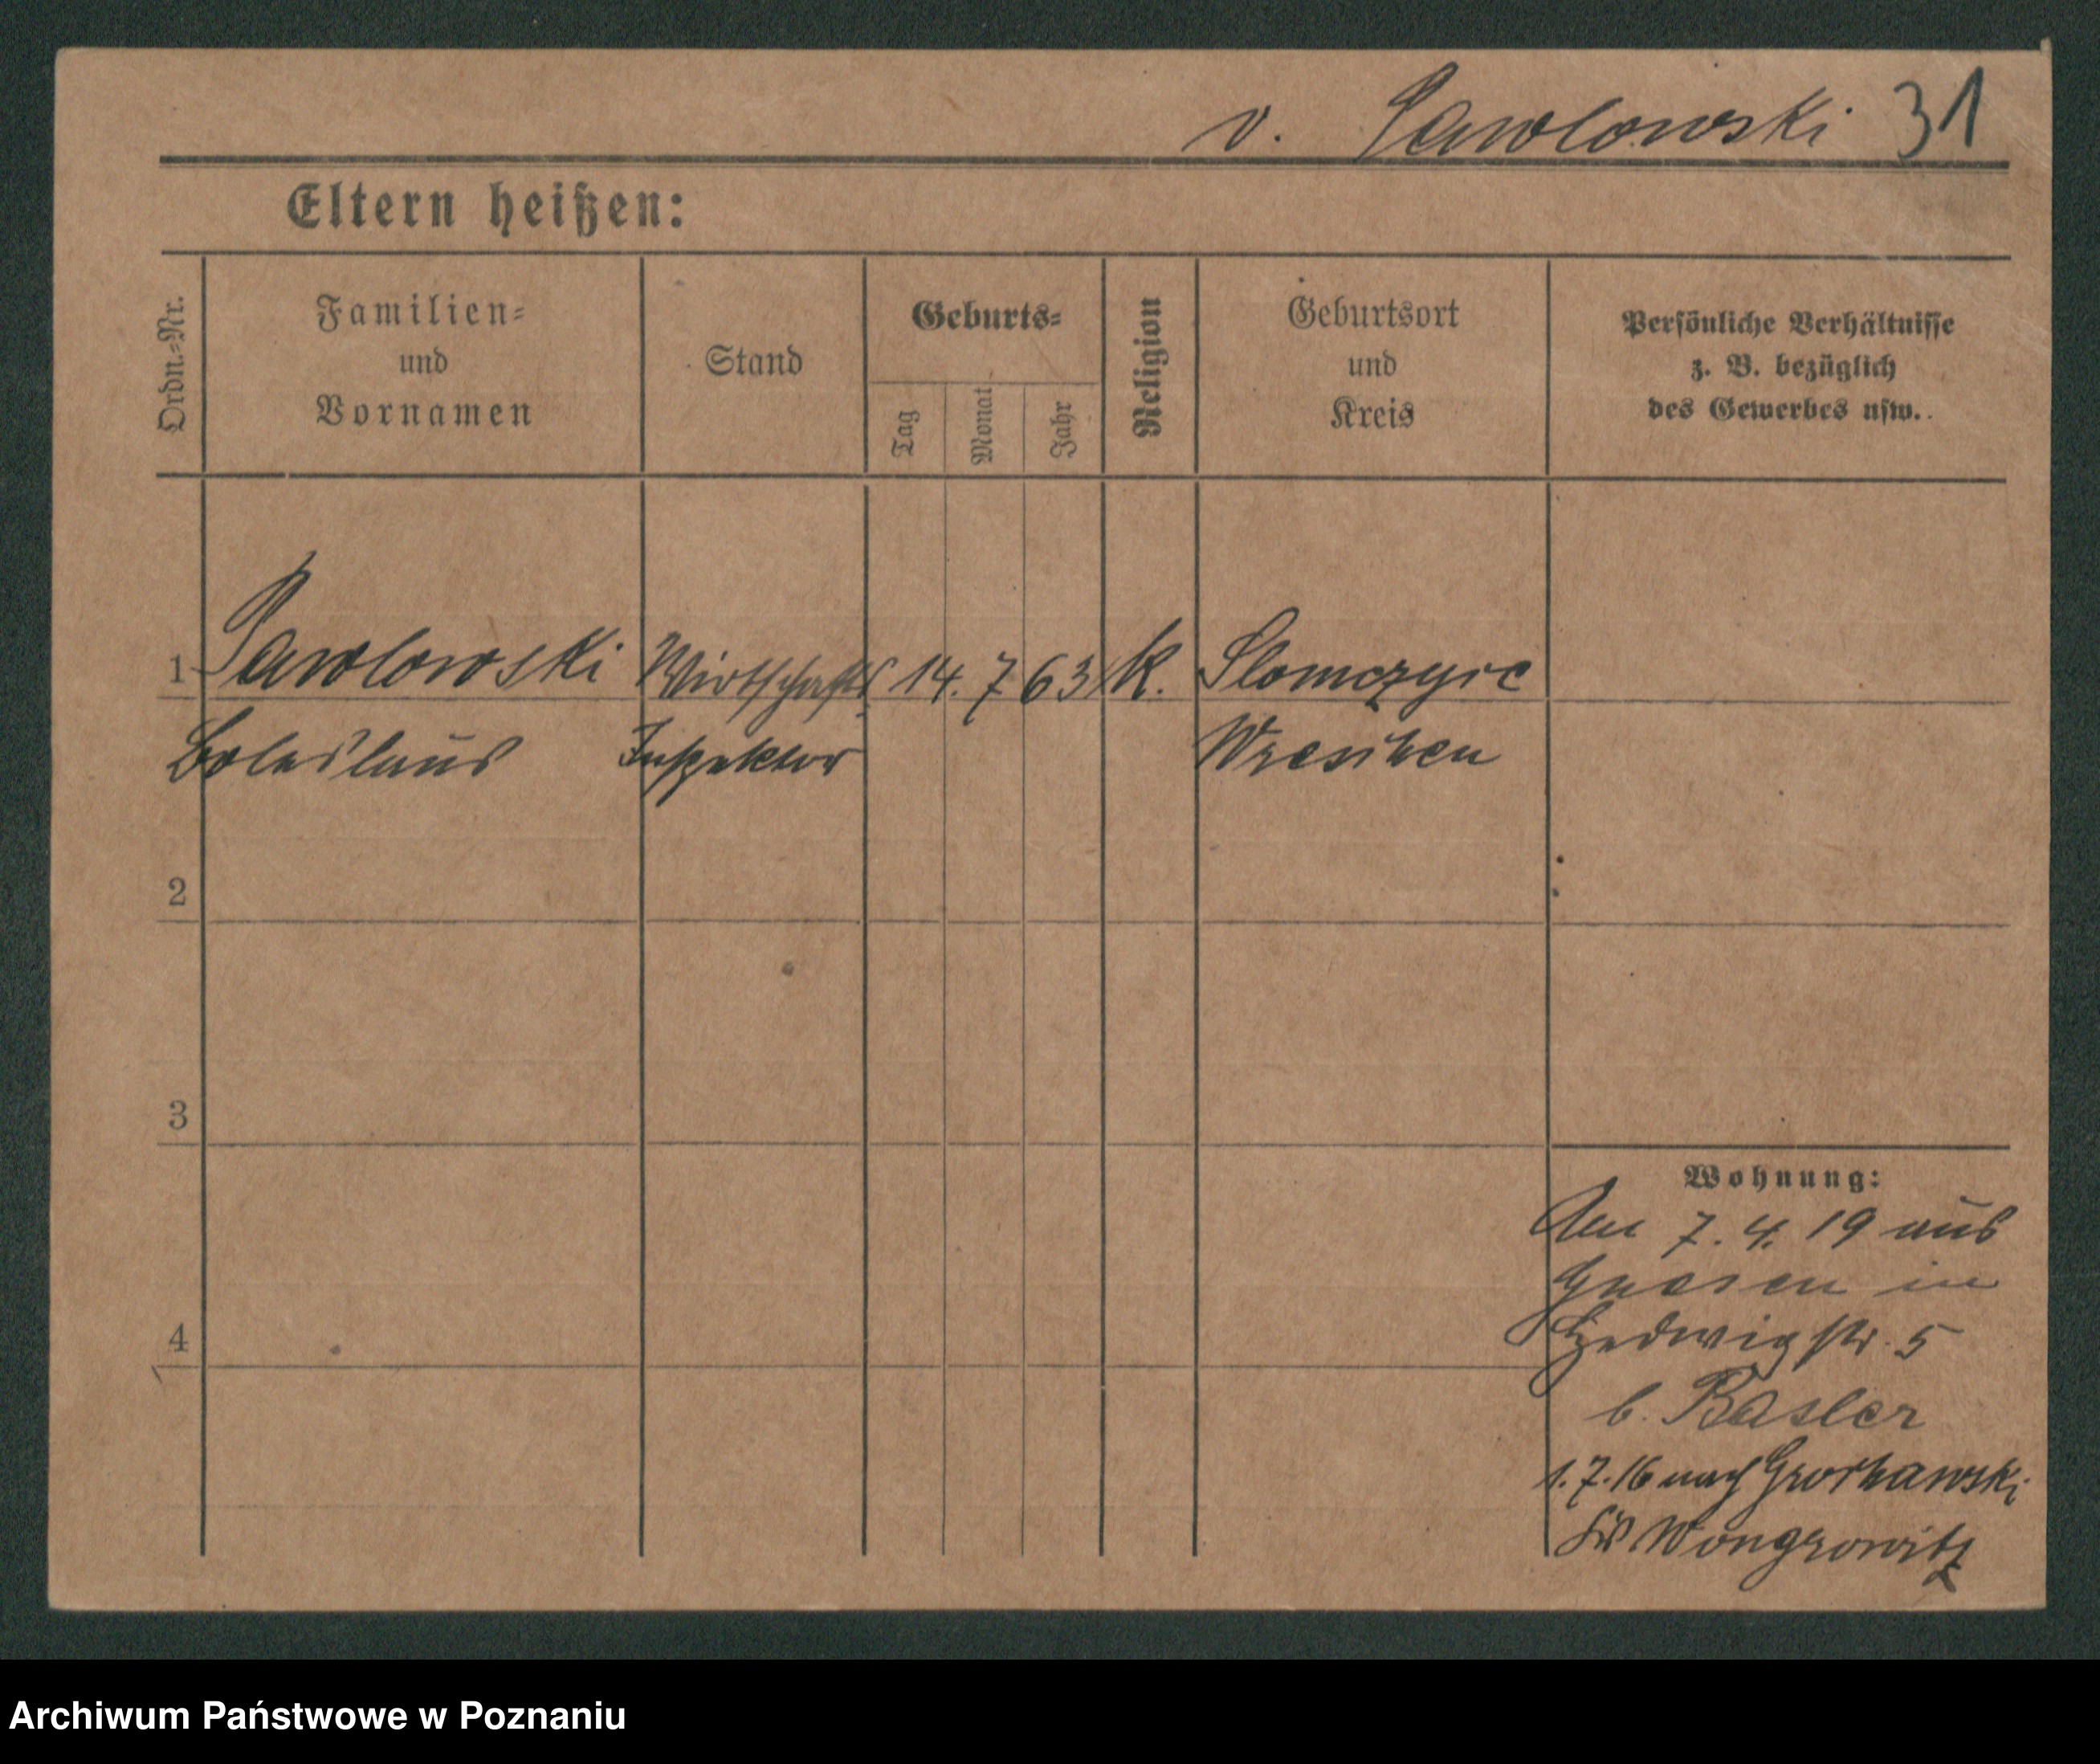 v. Pawlowski 31
Eltern heißen:
Ordn.-Nr.
Familien-
und
Vornamen
Stand
Geburts-
Tag
Monat
Jahr
Religion
Geburtsort
und
Kreis
Persönliche Verhältnisse
z. B. bezüglich
des Gewerbes usw.
1 Pawlowski Wirtschafts 14. 7 63 K. Slomczyce
Boleslaus Inspektor Wreschen
2
3
4
Wohnung:
Am 7. 4. 19 aus
Gnesen in
Hedwigstr. 5
b. Basler
1. 7. 16 nach
Wongrowitz
Archiwum Państwowe w Poznaniu